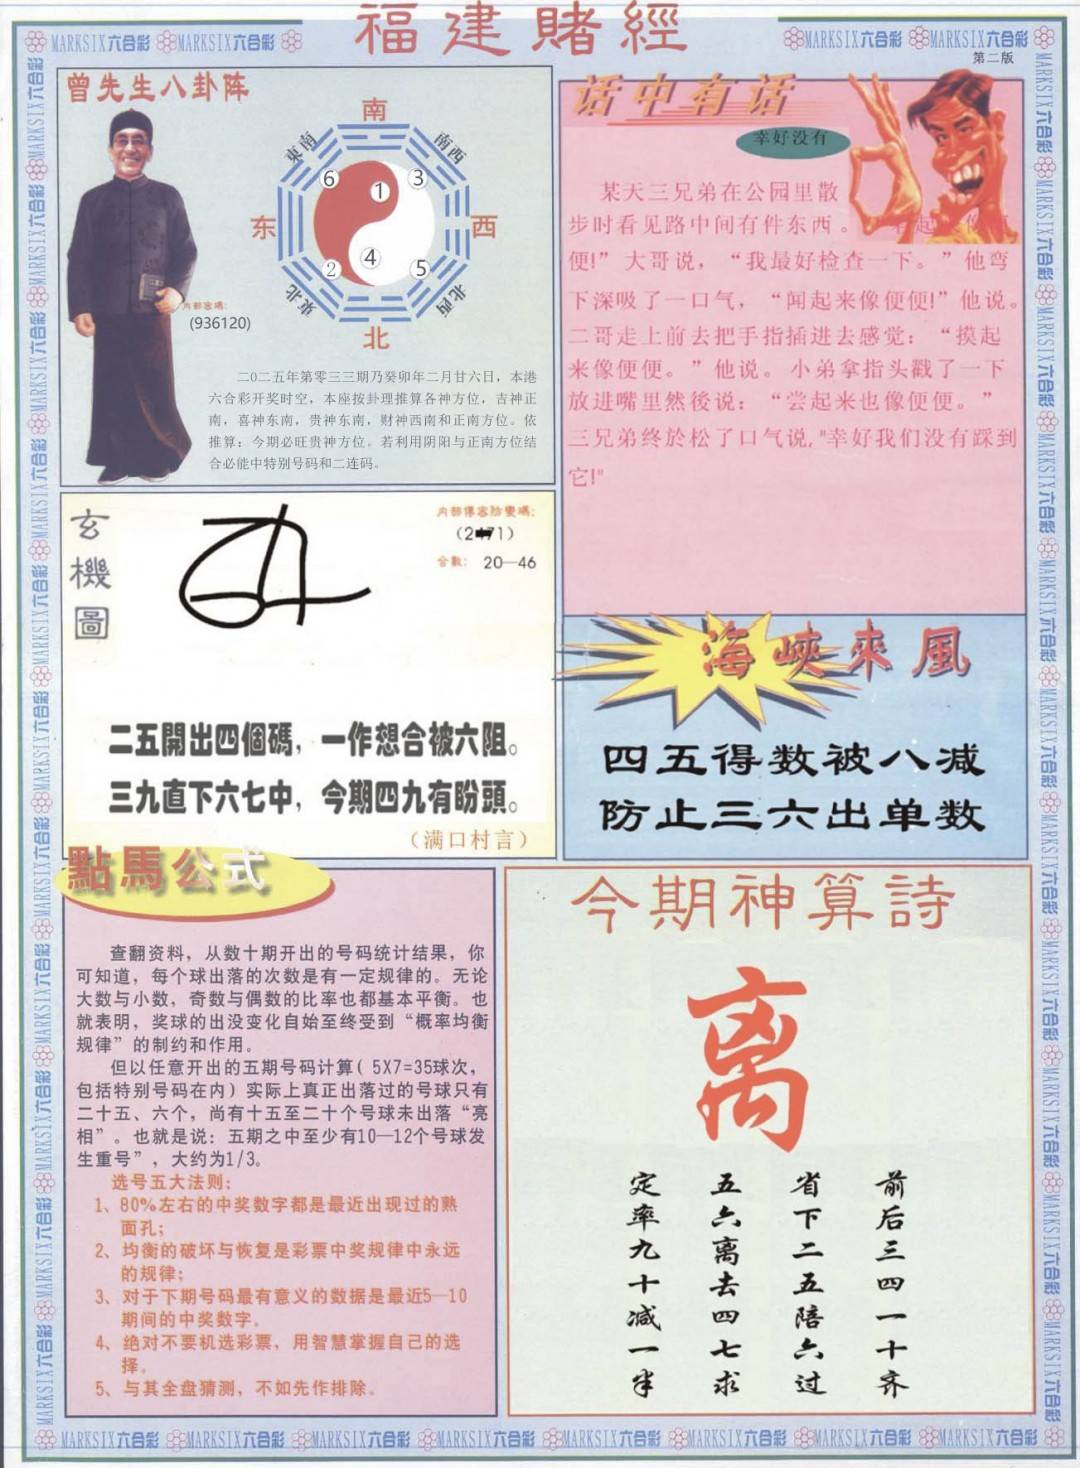 福建賭經
MARKSIX六合彩 MARKSIX六合彩
MARKSIX六合彩 MARKSIX六合彩
第二版
曾先生八卦阵
南
東南
南西
6
1
3
东
西
2
4
5
東北
北西
北
内部密碼:
(936120)
二0二五年第零三三期乃癸卯年二月廿六日，本港
六合彩开奖时空，本座按卦理推算各神方位，吉神正
南，喜神东南，贵神东南，财神西南和正南方位。依
推算：今期必旺贵神方位。若利用阴阳与正南方位结
合必能中特别号码和二连码。
话中有话
幸好没有
某天三兄弟在公园里散
步时看见路中间有件东西。
便!”大哥说，“我最好检查一下。”他弯
下深吸了一口气，“闻起来像便便!”他说。
二哥走上前去把手指插进去感觉：“摸起
来像便便。”他说。小弟拿指头戳了一下
放进嘴里然後说：“尝起来也像便便。”
三兄弟终於松了口气说,"幸好我们没有踩到
它!"
玄機圖
内部傳密防變碼:
合數: 20—46
二五開出四個碼，一作想合被六阻。
三九直下六七中，今期四九有盼頭。
（满口村言）
海峽來風
四五得数被八减
防止三六出单数
點馬公式
查翻资料，从数十期开出的号码统计结果，你
可知道，每个球出落的次数是有一定规律的。无论
大数与小数，奇数与偶数的比率也都基本平衡。也
就表明，奖球的出没变化自始至终受到“概率均衡
规律”的制约和作用。
但以任意开出的五期号码计算( 5X7=35球次，
包括特别号码在内）实际上真正出落过的号球只有
二十五、六个，尚有十五至二十个号球未出落“亮
相”。也就是说：五期之中至少有10—12个号球发
生重号”，大约为1/3。
选号五大法则：
1、80%左右的中奖数字都是最近出现过的熟
面孔；
2、均衡的破坏与恢复是彩票中奖规律中永远
的规律；
3、对于下期号码最有意义的数据是最近5—10
期间的中奖数字。
4、绝对不要机选彩票，用智慧掌握自己的选
择。
5、与其全盘猜测，不如先作排除。
今期神算詩
离
前后三四一十齐
省下二五陪六过
五六离去四七求
定率九十减一半
MARKSIX六合彩 MARKSIX六合彩 MARKSIX六合彩 MARKSIX六合彩 MARKSIX六合彩 MARKSIX六合彩 MARKSIX六合彩 MARKSIX六合彩